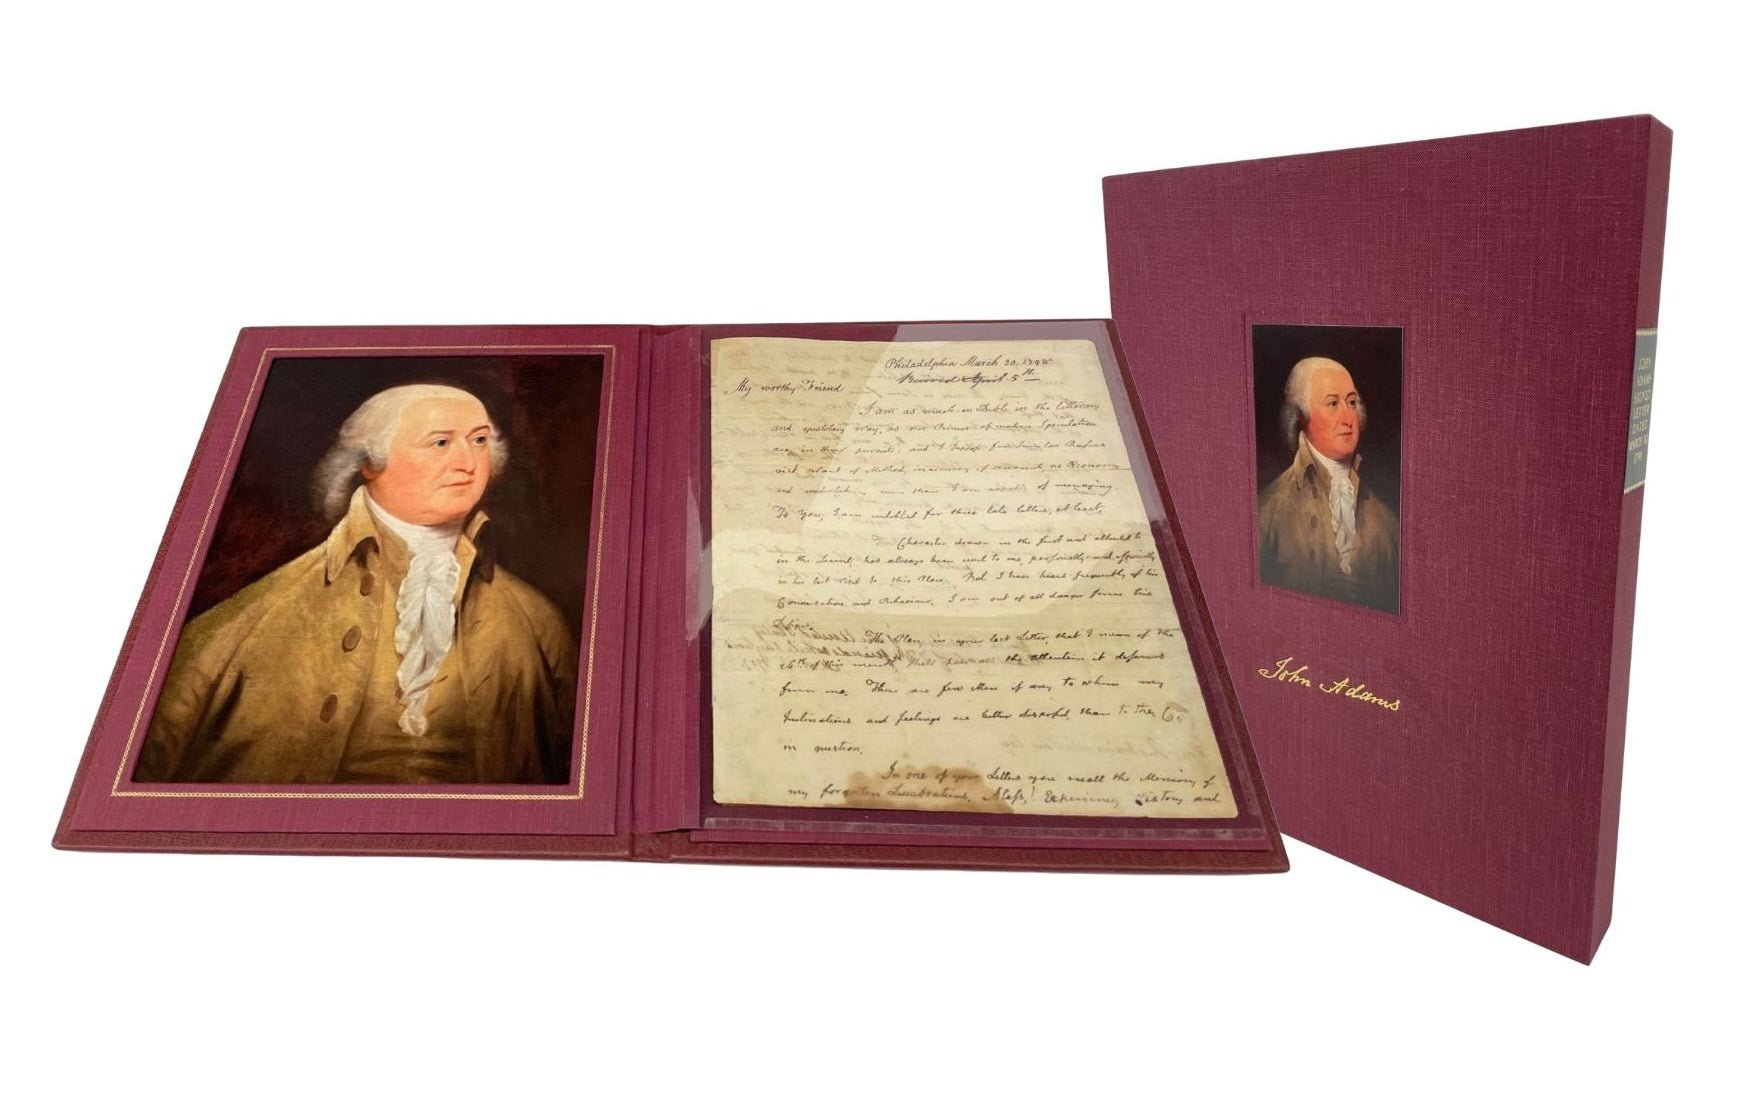 Philadelphia March 30. 1795
Received April 5th
My worthy Friend
I am as much in Debt in the litterary
and epistolary way, as our Heroes of modern Speculation
are in their pursuits; and I
with want of Method, in accounts, as Oeconomy
and undertaking more than I am capable of managing.
To you, I am indebted for three late letters, at least
Character drawn in the first and alluded to
in the Second, has always been civil to me personally and
in his last visit to this Place. But I have heard frequently of his
Conversation and Behaviour. I am out of all danger from this
The Plan in your last Letter, that I mean of the
26th of this month, shall have all the attention it deserves
from me. There are few Men if any to whom my
Inclinations and feelings are better disposed, than to the
in question.
In one of your Letters you recall the Memory of
my forgotten Lucubrations. Alass! Experience, History and
John Adams
JOHN
ADAMS
SIGNED
LETTER
DATED
MARCH 30,
1795